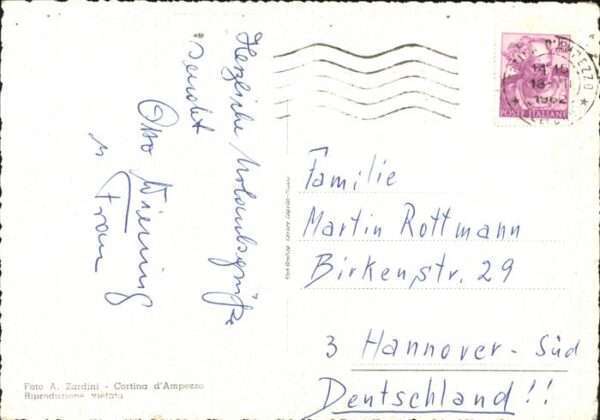 Herzliche Urlaubsgrüße
sendet
Otto Wiening
u Frau
Familie
Martin Rottmann
Birkenstr. 29
3 Hannover - Süd
Deutschland !!
D'AMPEZZO
1962
POSTE ITALIANE
Foto A. Zardini - Cortina d'Ampezzo
Riproduzione vietata